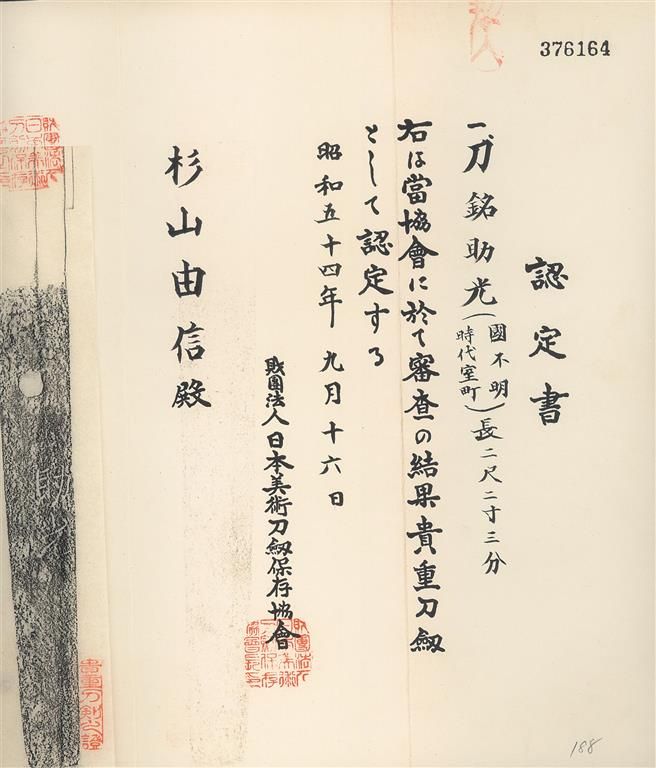 376164
認定書
一刀 銘 助光(國不明
時代室町)長二尺二寸三分
右は當協會に於て審査の結果貴重刀劔
として認定する
昭和五十四年九月十六日
財團法人日本美術刀劔保存協會
杉山由信殿
助光
貴重刀剣之證
188